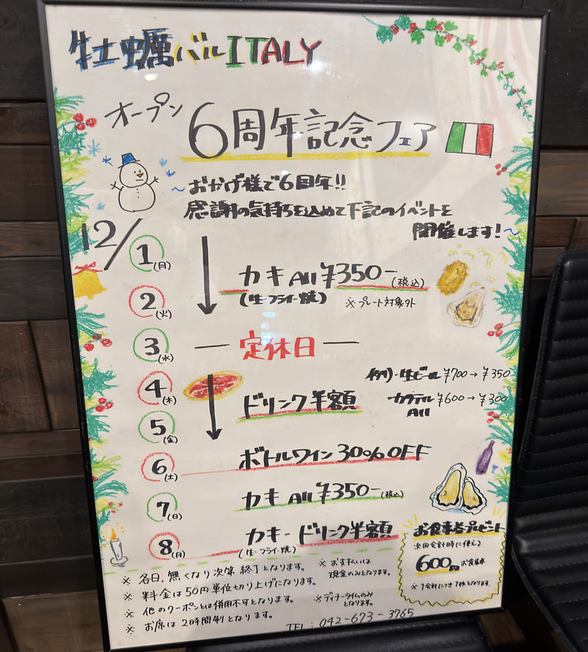 牡蠣バル ITALY
オープン
6周年記念フェア
～おかげ様で6周年!!
感謝の気持ちを込めて下記のイベントを
開催します!～
12/
1(月)
カキ All ¥350-(税込)
(生・フライ・焼)
※プレート対象外
2(火)
3(水)
― 定休日 ―
4(木)
ドリンク半額
(例)・生ビール ¥700→¥350
・カクテル ¥600→¥300
All
5(金)
6(土)
ボトルワイン 30%OFF
7(日)
カキ All ¥350-(税込)
8(月)
カキ・ドリンク半額
(生・フライ・焼)
お食事券プレゼント
次回会計時に使える
600円お食事券
※1会計につき1枚となります。
※ 各日、無くなり次第終了となります。
※ 料金は50円単位切り上げになります。
※ 他のクーポンとは併用不可となります。
※ お席は2時間制となります。
※ お支払いは
現金のみとなります。
※ディナータイムのみ
となります。
TEL:042-673-3765